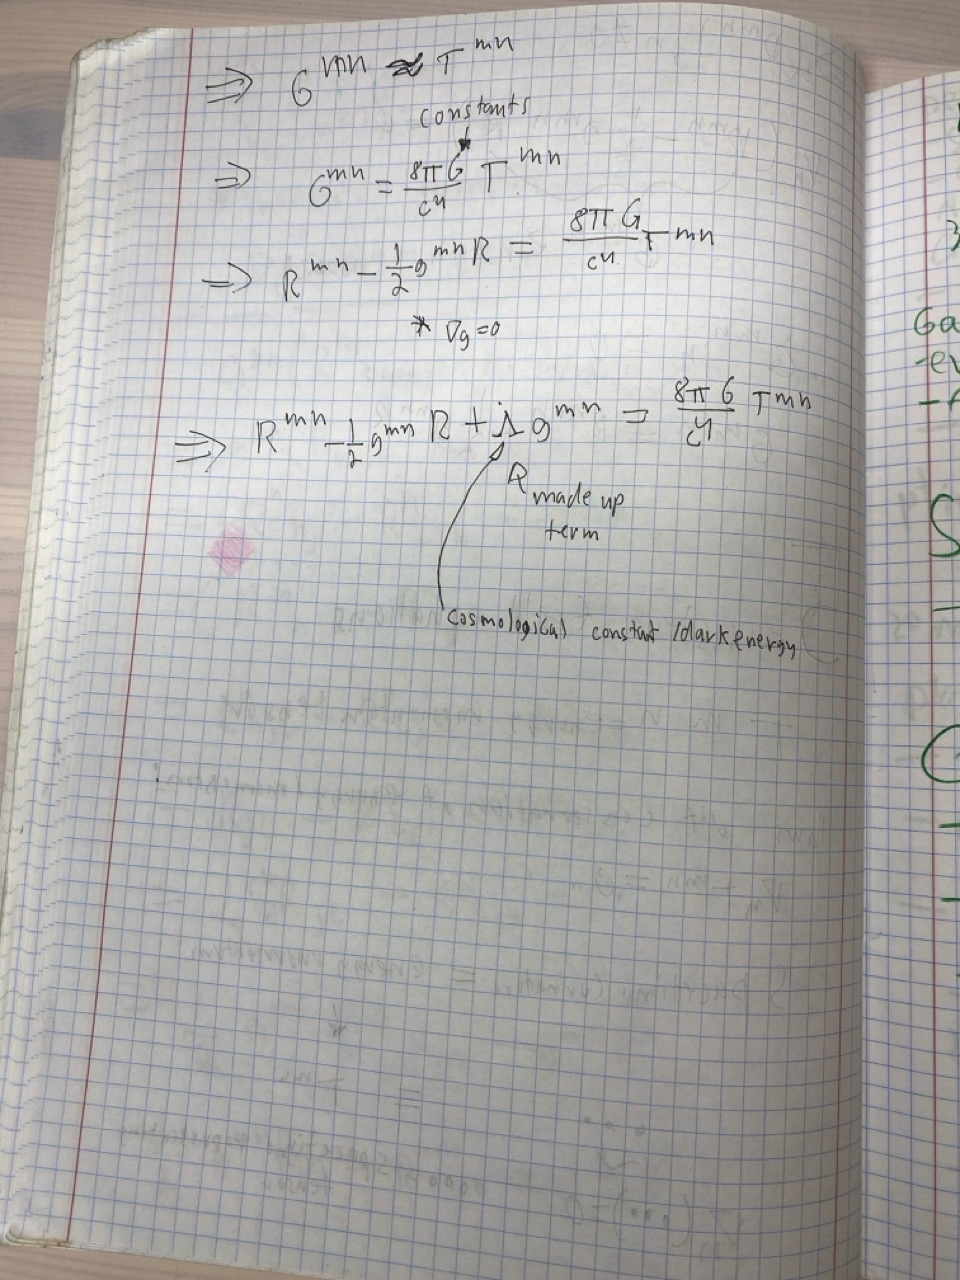 ⇒ G^mn ≈ T^mn
constants
⇒ G^mn = 8πG/c^4 T^mn
⇒ R^mn - 1/2 g^mn R = 8πG/c^4 T^mn
* ∇g=0
⇒ R^mn - 1/2 g^mn R + Λ g^mn = 8πG/c^4 T^mn
A made up
term
cosmological constant /dark energy
3
Ga
-ev
S